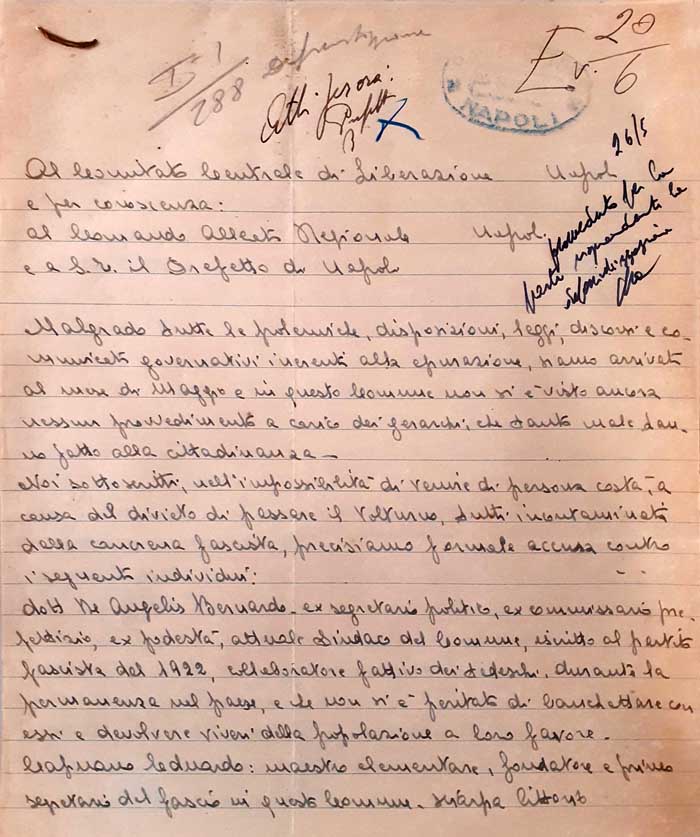 I-1
288
Ev. 20/6
NAPOLI
Atti
26/5
Al Comitato Centrale di Liberazione Napoli
e per conoscenza:
al Comando Alleato Regionale Napoli
e a S.E. il Prefetto di Napoli
provveduto per la
parte riguardante la
Malgrado tutte le polemiche, disposizioni, leggi, discorsi e co-
municati governativi inerenti alla epurazione, siamo arrivati
al mese di Maggio e in questo Comune non si è visto ancora
nessun provvedimento a carico dei gerarchi, che tanto male han-
no fatto alla cittadinanza -
Noi sottoscritti, nell'impossibilità di venire di persona costà, a
causa del divieto di passare il Volturno, tutti incontaminati
dalla cancrena fascista, precisiamo formale accusa contro
i seguenti individui:
dott De Angelis Bernardo - ex segretario politico, ex commissario pre-
fettizio, ex podestà, attuale Sindaco del Comune, iscritto al partito
fascista dal 1922, collaboratore fattivo dei tedeschi, durante la
permanenza nel paese, e che non si è peritato di banchettare con
essi e devolvere viveri della popolazione a loro favore -
Capuano Eduardo: maestro elementare, fondatore e primo
segretario del fascio in questo Comune - sciarpa littorio